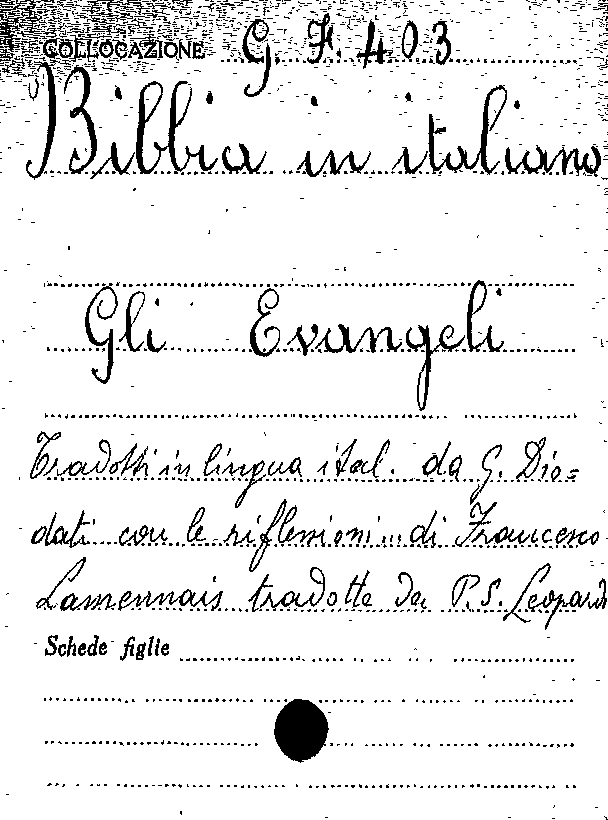 COLLOCAZIONE G. F. 403
Bibbia in italiano
Gli Evangeli
Tradotti in lingua ital. da G. Dio=
dati con le riflessioni... di Francesco
Lamennais tradotte da P. S. Leopardi
Schede figlie